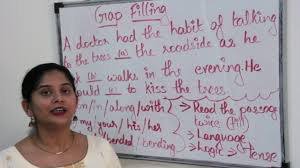 Gap Filling
A doctor had the habit of talking
to the trees (a) the roadside as he
(b) walks in the evening. He
to kiss the trees.
in/along/with
my/your/his/her
/bending
→ Read the passage
twice
→ Language
→ Logic → Tense